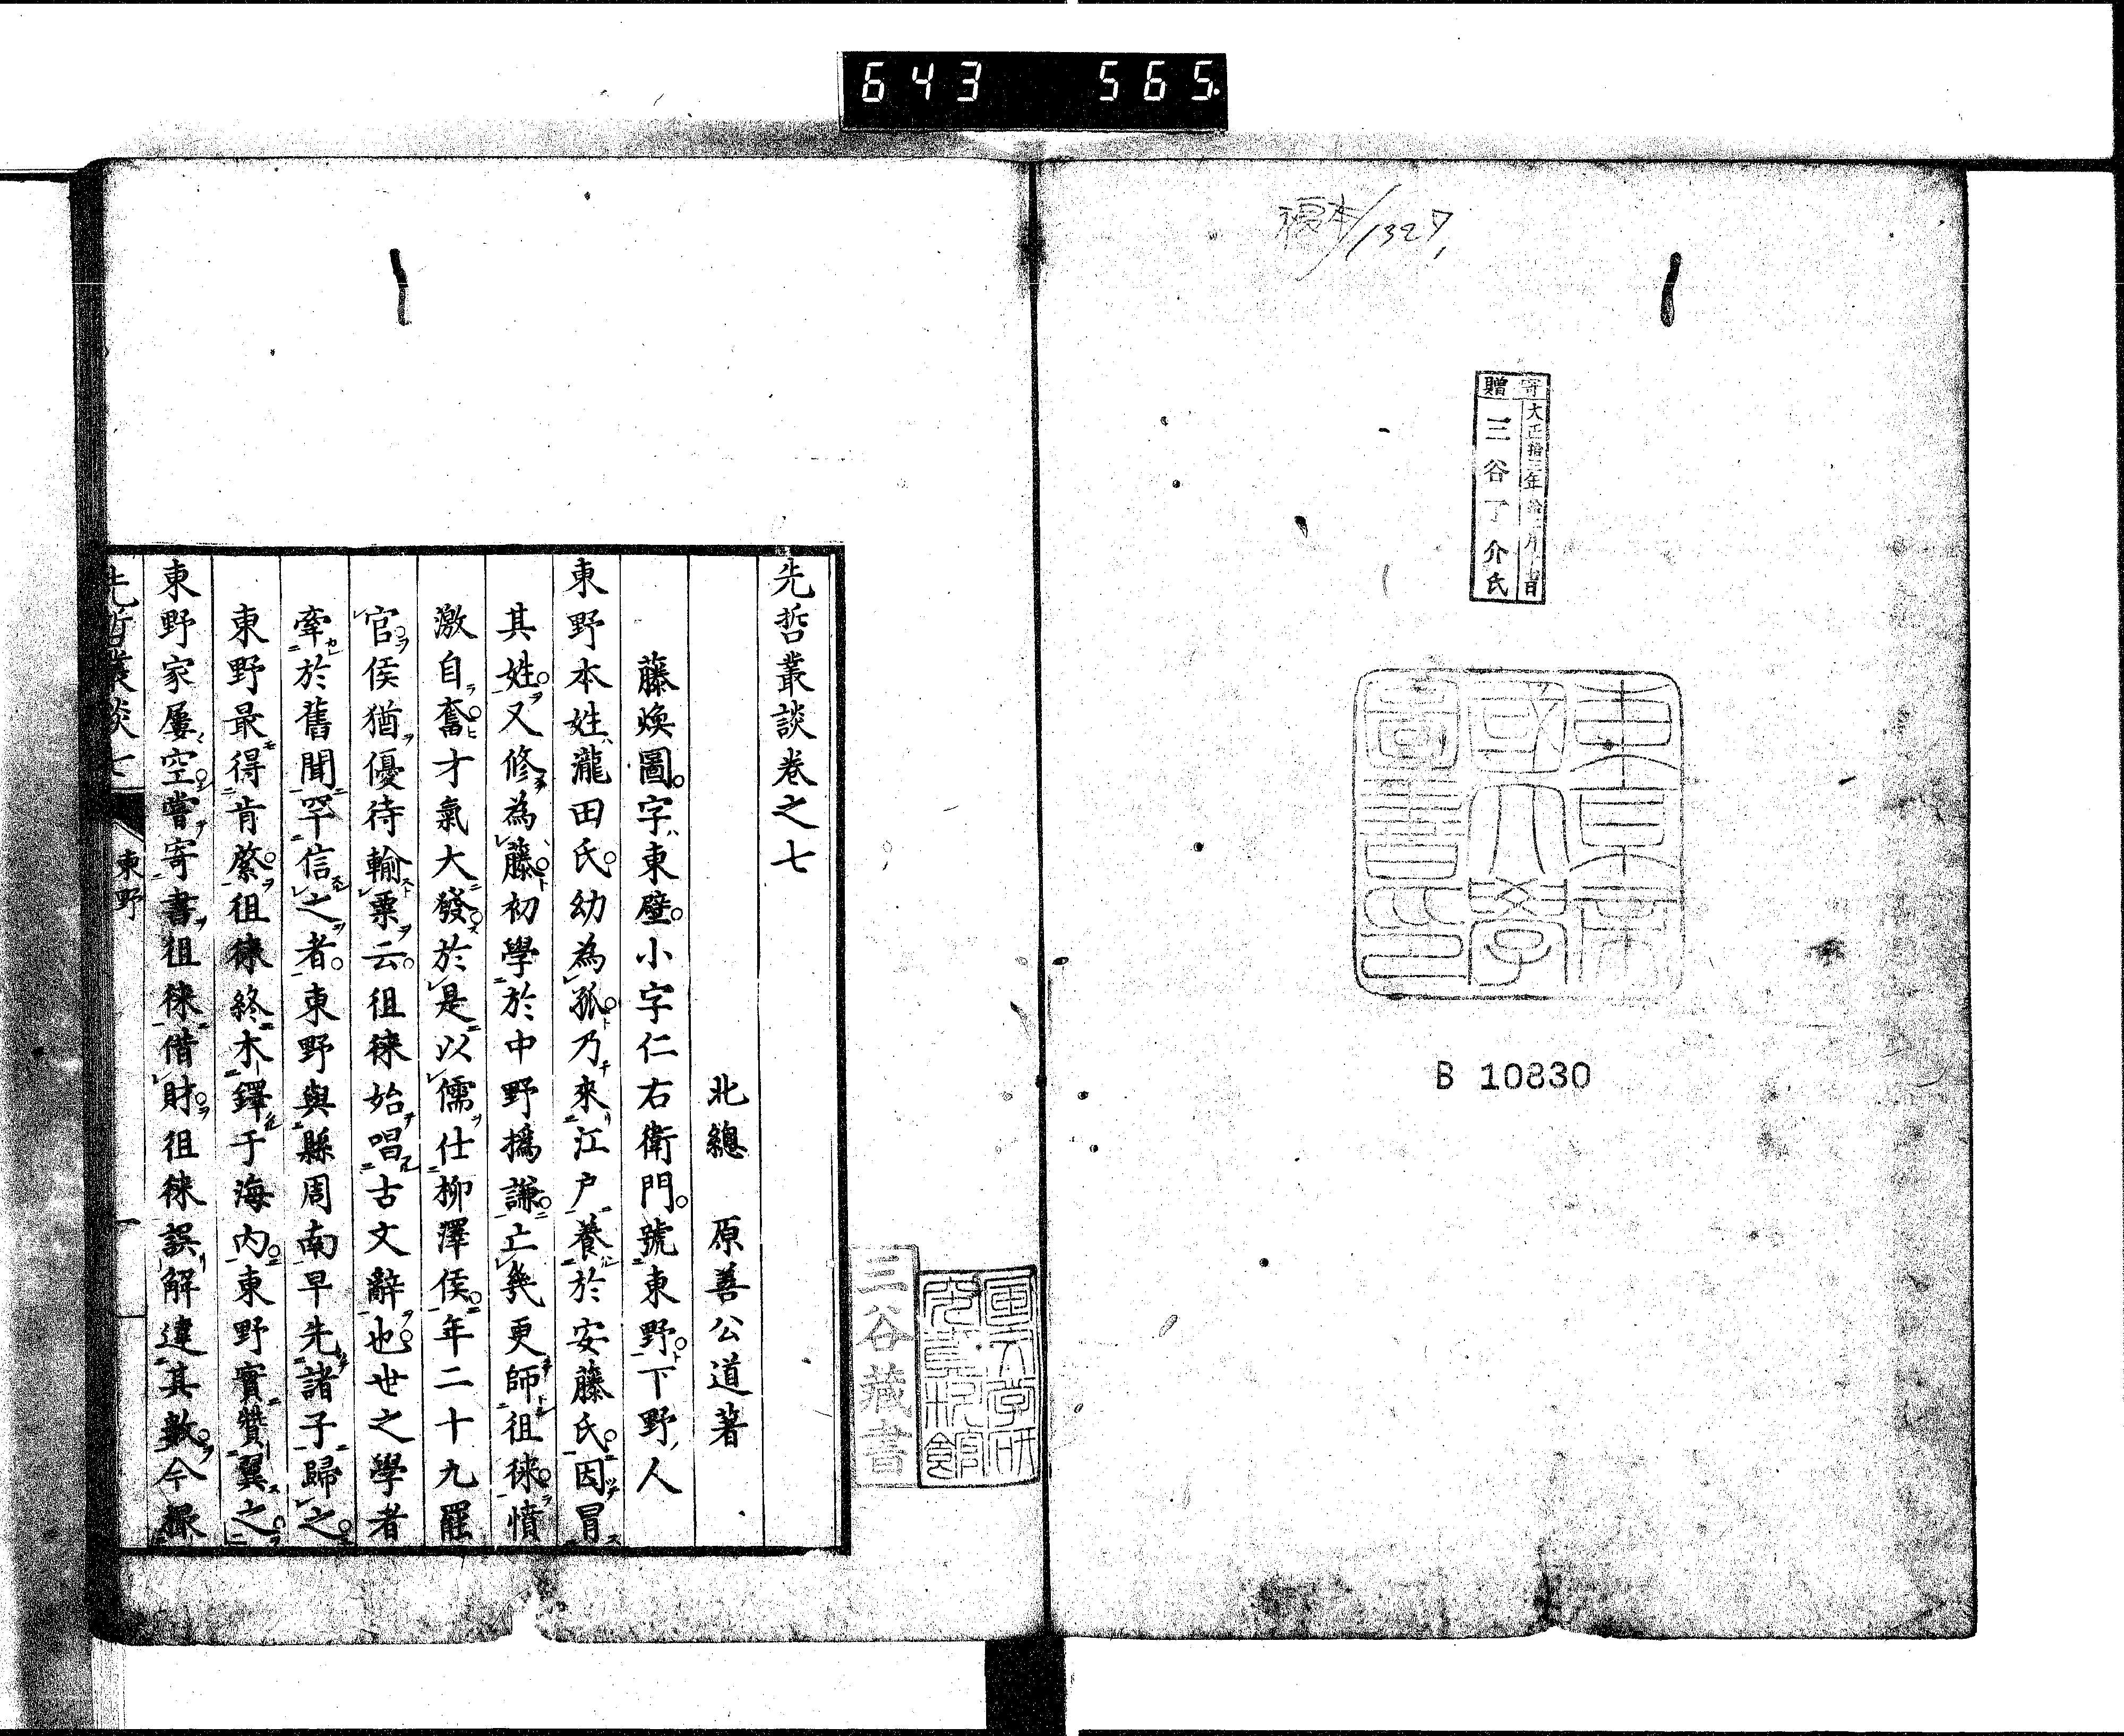 643 565.
1327
寄贈
大正拾三年
三谷了介氏
東京帝
國大學
圖書印
B 10830
三谷藏書
先哲叢談卷之七
北總 原善公道著
藤煥圖。字東壁。小字仁右衛門。號東野。下野人
東野本姓瀧田氏。幼為孤。乃來江戸。養於安藤氏。因冒
其姓。又修為藤。初學於中野撝謙。亡幾更師徂徠。憤
激自奮。才氣大發。於是以儒仕柳澤侯。年二十九罷
官。侯猶優待輸粟云。徂徠始唱古文辭也。世之學者
牽於舊聞。罕信之者。東野與縣周南早先諸子歸之。
東野最得肯綮。徂徠終木鐸于海內。東野實贊翼之。
東野家屢空。嘗寄書徂徠借財。徂徠誤解違其數。今
先哲叢談七
東野
一